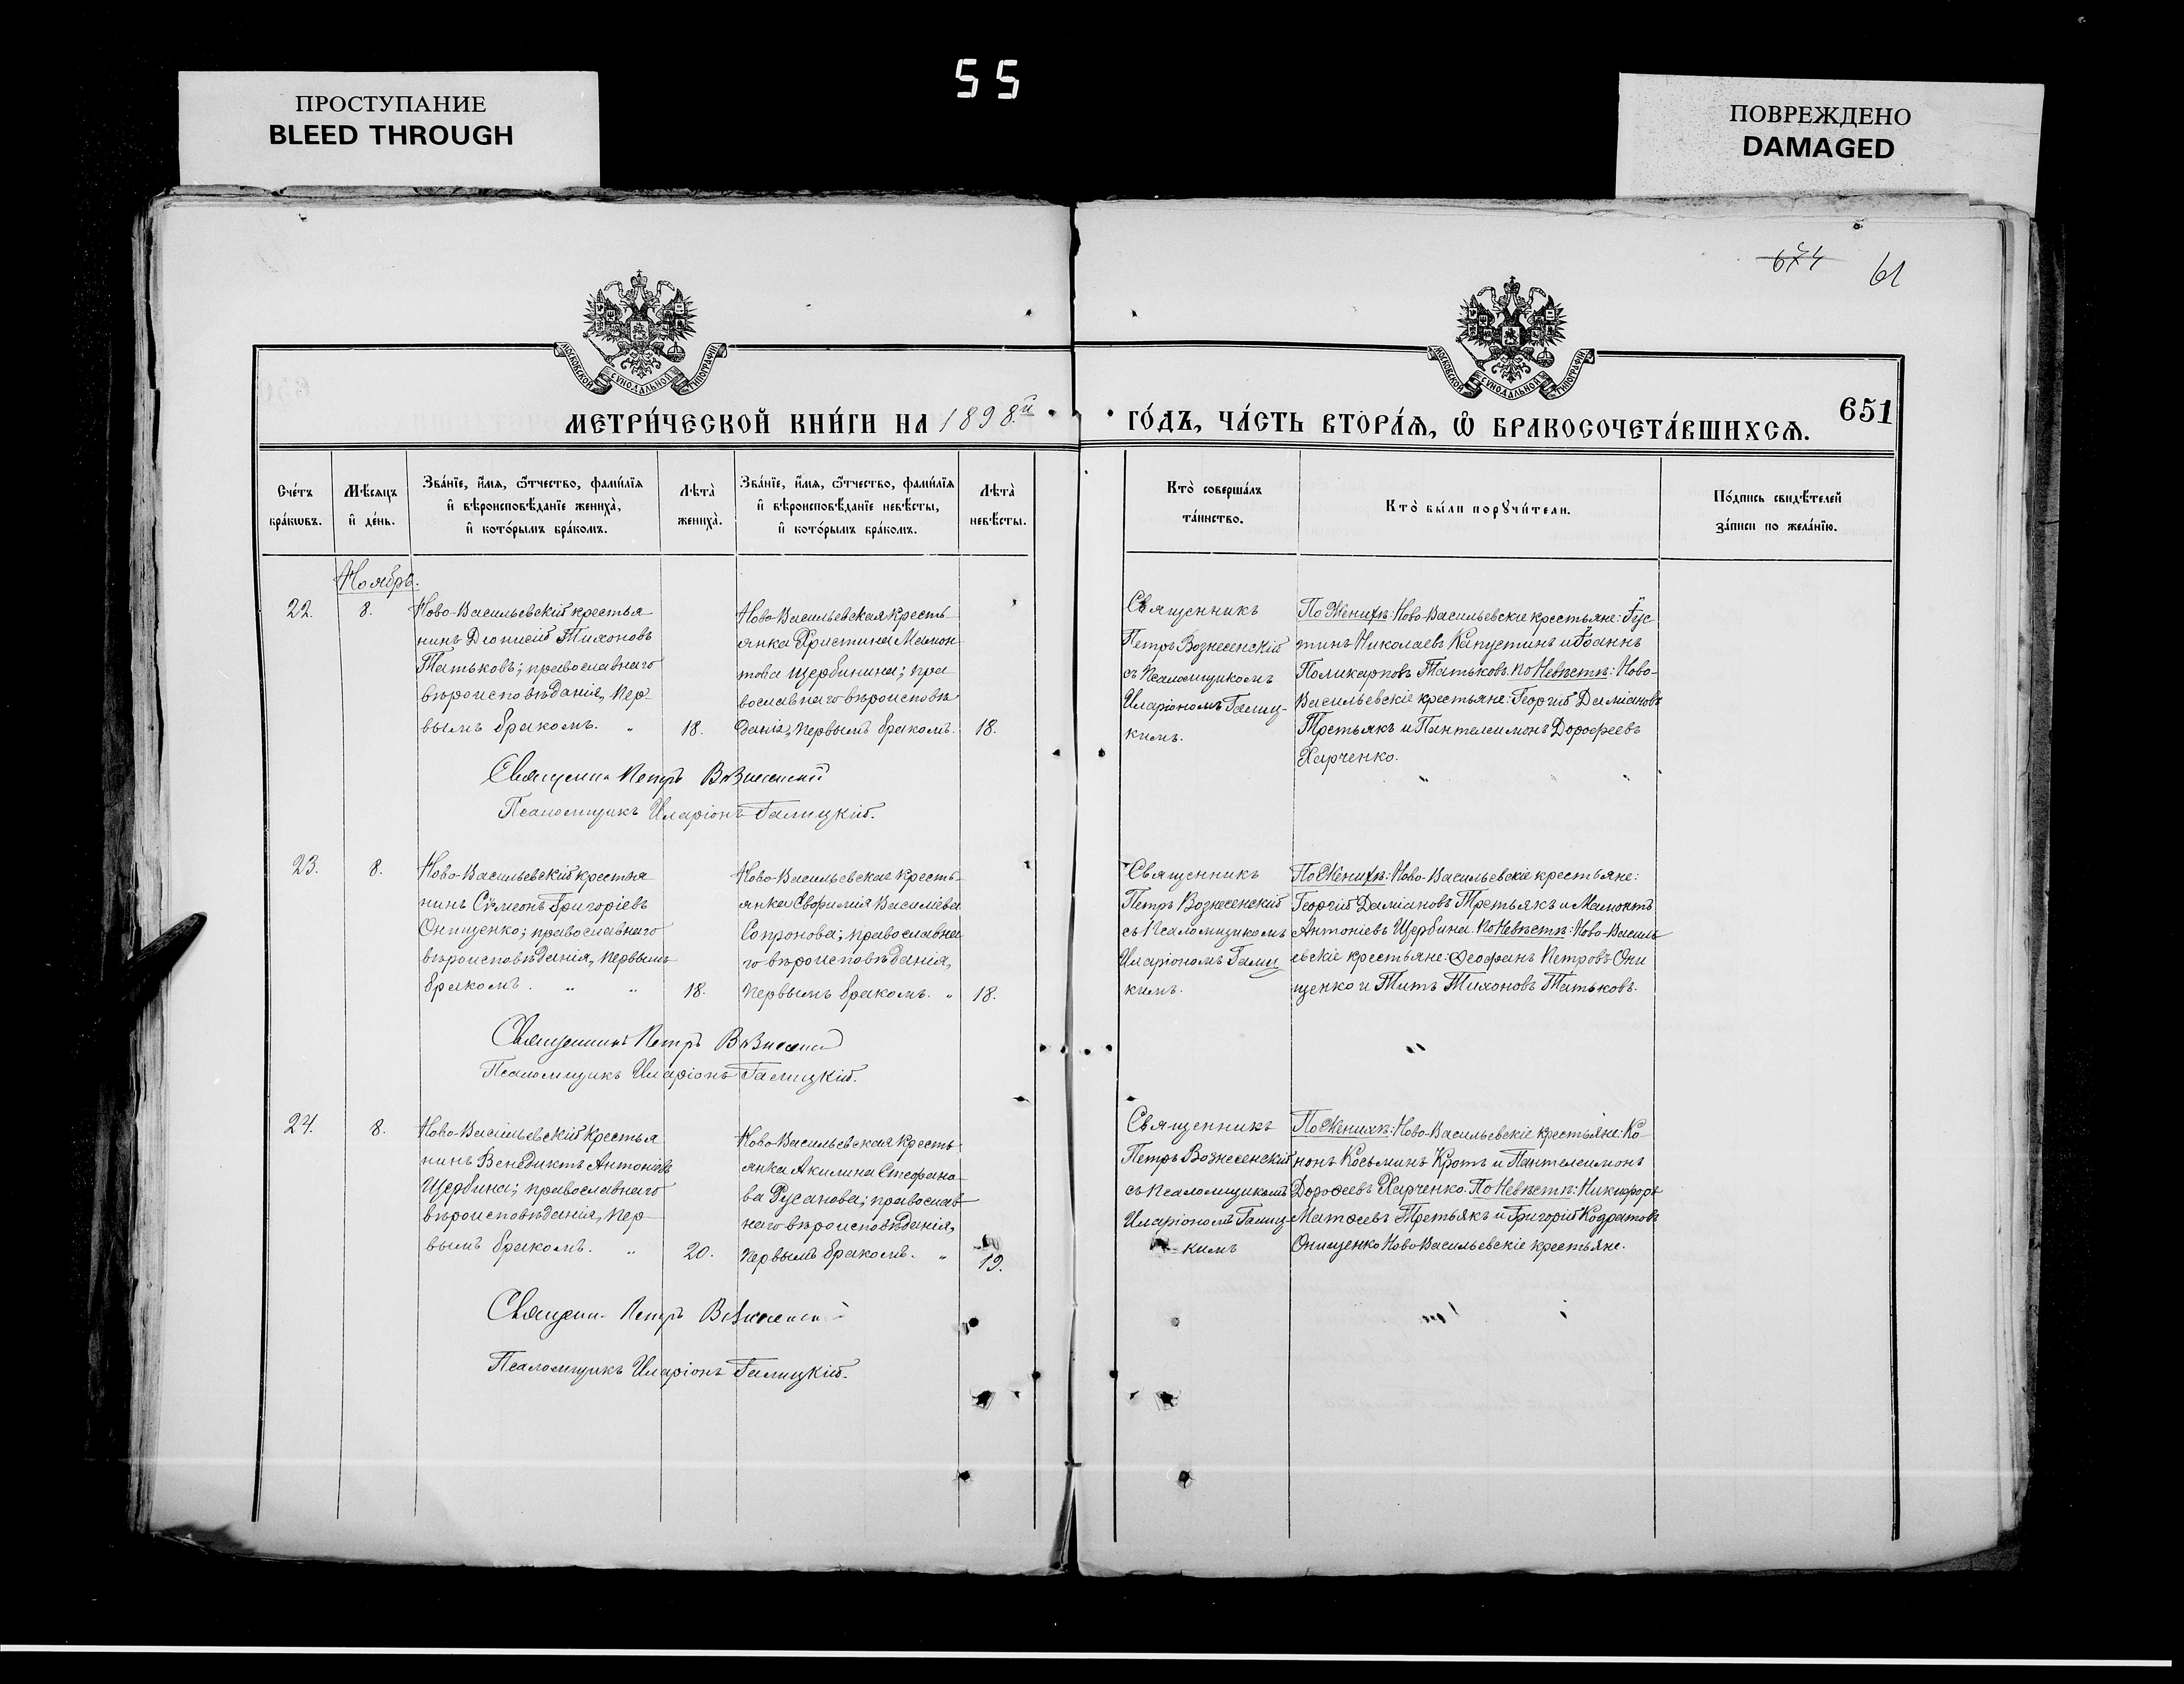 55
ПРОСТУПАНИЕ
BLEED THROUGH
ПОВРЕЖДЕНО
DAMAGED
674
61
МОСКОВСКОЙ СУНОДАЛЬНОЙ ТИПОГРАФІИ
МОСКОВСКОЙ СУНОДАЛЬНОЙ ТИПОГРАФІИ
МЕТРИ́ЧЕСКОЙ КНИ́ГИ НА 1898й
ГО́ДЪ, ЧА́СТЬ ВТОРА́Ѧ, Ѽ БРАКОСОЧЕТА́ВШИХСѦ.
651
Сче́тъ
бра́кѡвъ.
Мѣ́сяцъ
и҆ де́нь.
Зва́нїе, и҆́мѧ, ѻ҆́тчество, фами́лїѧ
и҆ вѣроисповѣ́данїе жениха̀,
и҆ кото́рымъ бра́комъ.
Лѣта̀
жениха̀.
Зва́нїе, и҆́мѧ, ѻ҆́тчество, фами́лїѧ
и҆ вѣроисповѣ́данїе невѣ́сты,
и҆ кото́рымъ бра́комъ.
Лѣта̀
невѣ́сты.
Кто̀ соверша́лъ
та́инство.
Кто̀ бы́ли порꙋчи́тели.
По́дпись свидѣ́телей
за́писи по жела́нїю.
Ноябрь.
22.
8.
Ново-Васильевскій крестья
нинъ Діонисій Тихоновъ
Татьковъ; православнаго
вѣроисповѣданія, пер-
вымъ бракомъ. „
18.
Ново-Васильевская кресть-
янка Христина Мамон
това Щербинина; пра
вославнаго вѣроисповѣ
данія, первымъ бракомъ.
18.
Священникъ
Петръ Вознесенскій
съ псаломщикомъ
Иларіономъ Галиц-
кимъ.
По Женихѣ: Ново-Васильевскіе крестьяне: Іус-
тинъ Николаевъ Капустинъ и Іоаннъ
Поликарповъ Татьковъ. По Невѣстѣ: Ново-
Васильевскіе крестьяне: Георгій Даміановъ
Третьякъ и Пантелеимонъ Дорофеевъ
Харченко.
Петръ Вознесенскій
Псаломщикъ Иларіонъ Галицкій.
23.
8.
Ново-Васильевскій крестья
нинъ Сѵмеонъ Григоріевъ
Онищенко; православнаго
вѣроисповѣданія, первымъ
бракомъ. „ „
18.
Ново-Васильевская кресть-
янка Евфимія Василіева
Сапронова; православна
го вѣроисповѣданія,
первымъ бракомъ. „
18.
Священникъ
Петръ Вознесенскій
съ псаломщикомъ
Иларіономъ Галиц
кимъ.
По Женихѣ: Ново-Васильевскіе крестьяне:
Георгій Даміановъ Третьякъ и Мамонтъ
Антоніевъ Щербина. По Невѣстѣ: Ново-Василь
евскіе крестьяне: Ѳеофанъ Петровъ Они
щенко и Титъ Тихоновъ Татьковъ.
Священникъ Петръ Вознесенскій
Псаломщикъ Иларіонъ Галицкій.
24.
8.
Ново-Васильевскій крестья
нинъ Венедиктъ Антоніевъ
Щербина; православнаго
вѣроисповѣданія, пер-
вымъ бракомъ. „
20.
Ново-Васильевская кресть-
янка Акилина Стефано-
ва Русанова; православ-
наго вѣроисповѣданія,
первымъ бракомъ. „
19.
Священникъ
Петръ Вознесенскій
съ псаломщикомъ
Иларіономъ Галиц-
кимъ
По Женихѣ: Ново-Васильевскіе крестьяне: Ко-
нонъ Косьминъ Кротъ и Пантелеимонъ
Дороѳеевъ Харченко. По Невѣстѣ: Никифоръ
Матѳеевъ Третьякъ и Григорій Кодратовъ
Онищенко Ново-Васильевскіе крестьяне.
Петръ Вознесенскій
Псаломщикъ Иларіонъ Галицкій.